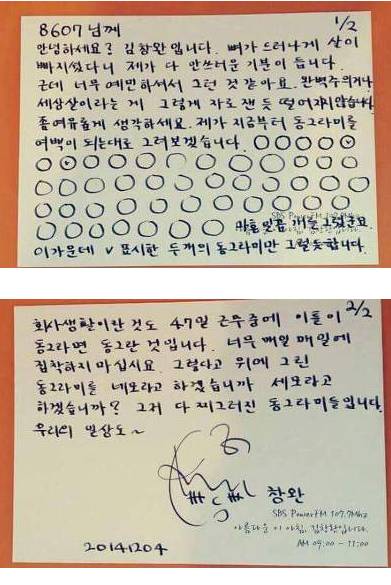 8607님께 1/2
안녕하세요? 김창완입니다. 뼈가 드러나게 살이
빠지셨다니 제가 다 안쓰러운 기분이 듭니다.
근데 너무 예민하셔서 그런 것 같아요. 완벽주의거나
세상살이라는 게 그렇게 자로 잰 듯 떨어지지 않습니다.
좀 여유롭게 생각하세요. 제가 지금부터 동그라미를
여백이 되는대로 그려보겠습니다.
SBS PowerFM 107.7Mhz
마흔일곱 개를 그렸군요.
이 가운데 v 표시한 두 개의 동그라미만 그럴듯합니다.
회사생활이란 것도 47일 근무중에 이틀이 2/2
동그라면 동그란 것입니다. 너무 매일 매일에
집착하지 마십시요. 그렇다고 위에 그린
동그라미를 네모라고 하겠습니까 세모라고
하겠습니까? 그저 다 찌그러진 동그라미들입니다.
우리의 일상도~
창완
SBS PowerFM 107.7Mhz
아름다운 이 아침, 김창완입니다.
AM 09:00 - 11:00
20141204